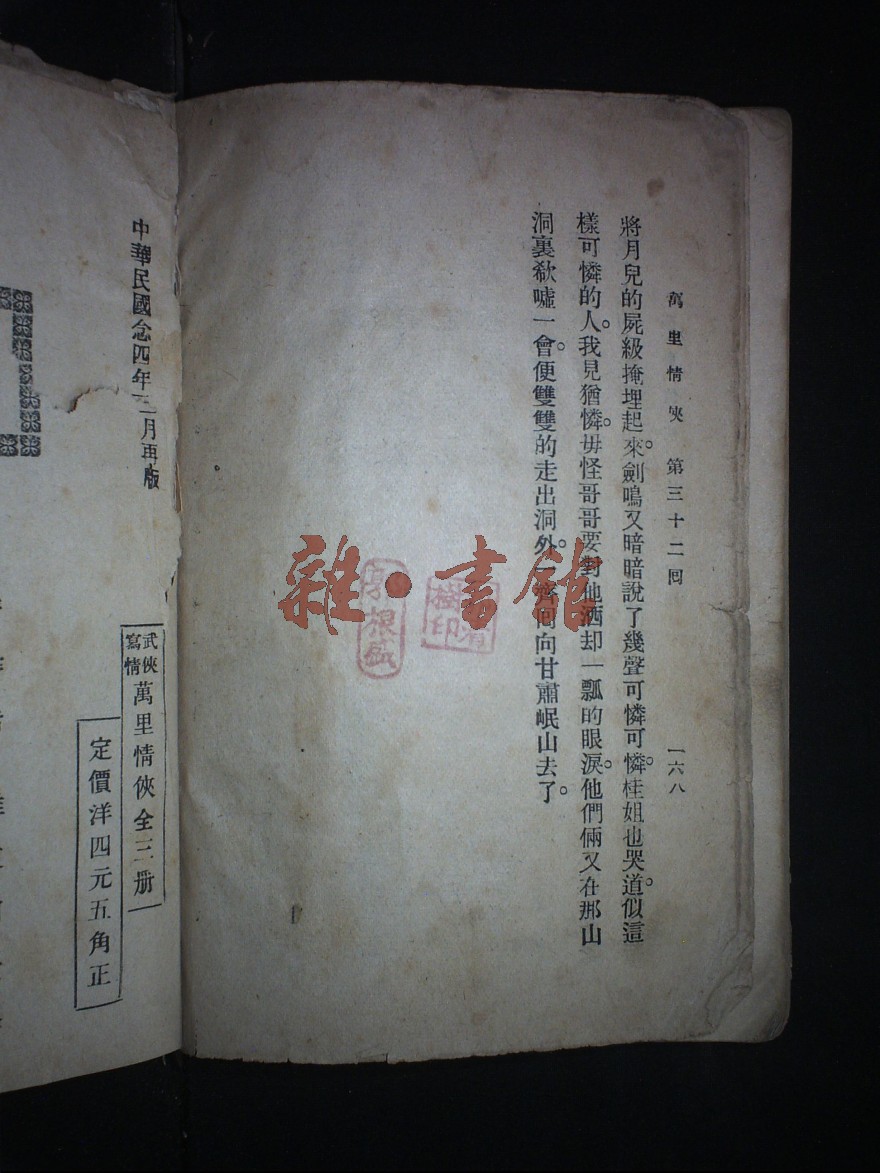 萬里情俠 第三十二回 一六八
將月兒的屍級掩埋起來。劍鳴又暗暗說了幾聲可憐可憐。桂姐也哭道。似這
樣可憐的人。我見猶憐。毋怪哥哥要對他洒却一瓢的眼淚。他們倆又在那山
洞裏欷噓一會。便雙雙的走出洞外。一齊同向甘肅岷山去了。
雜·書館
根盛
印
中華民國念四年 月再版
武俠
寫情
萬里情俠全三册
定價洋四元五角正